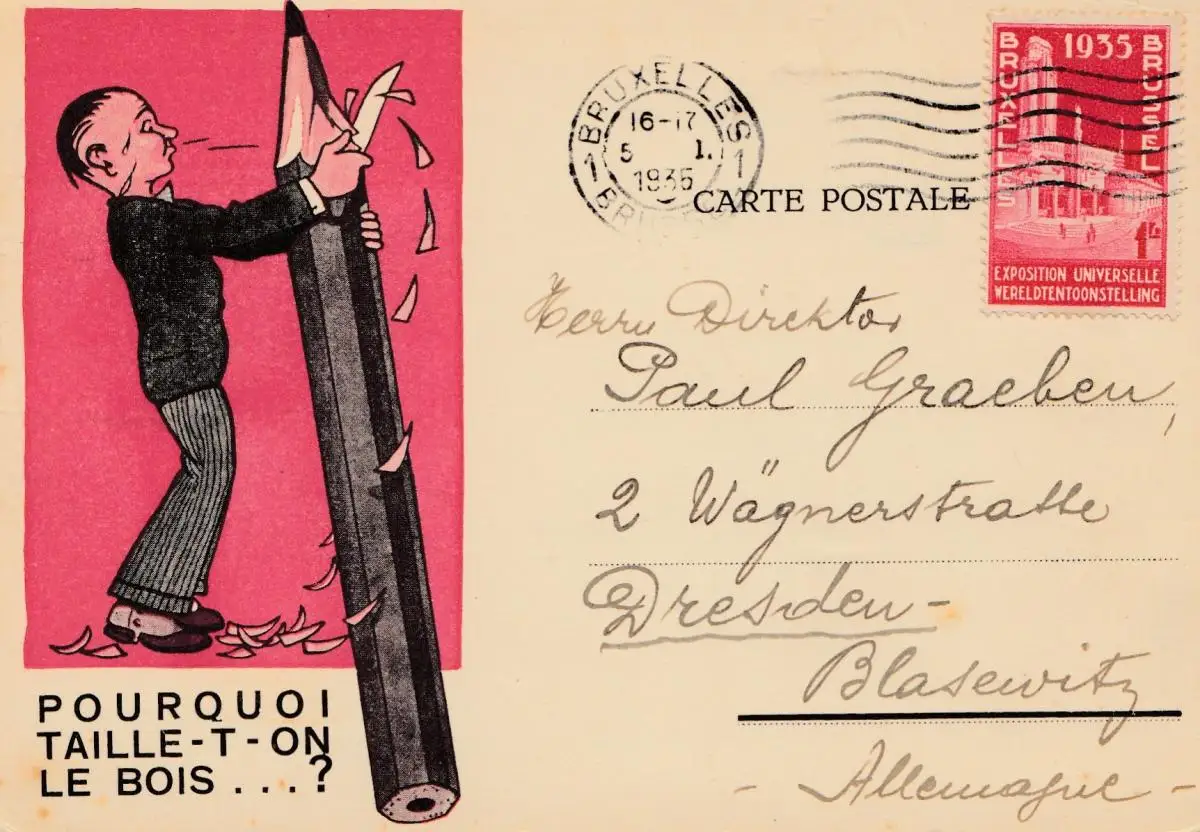 POURQUOI
TAILLE-T-ON
LE BOIS ...?
BRUXELLES
16-17
5 I.
1935
1 1
CARTE POSTALE
1935
BRUXELLES
BRUSSEL
1 Fr
EXPOSITION UNIVERSELLE
WERELDTENTOONSTELLING
Herrn Direktor
Paul Graeben,
2 Wägnerstraße
Dresden-
Blasewitz
- Allemagne -